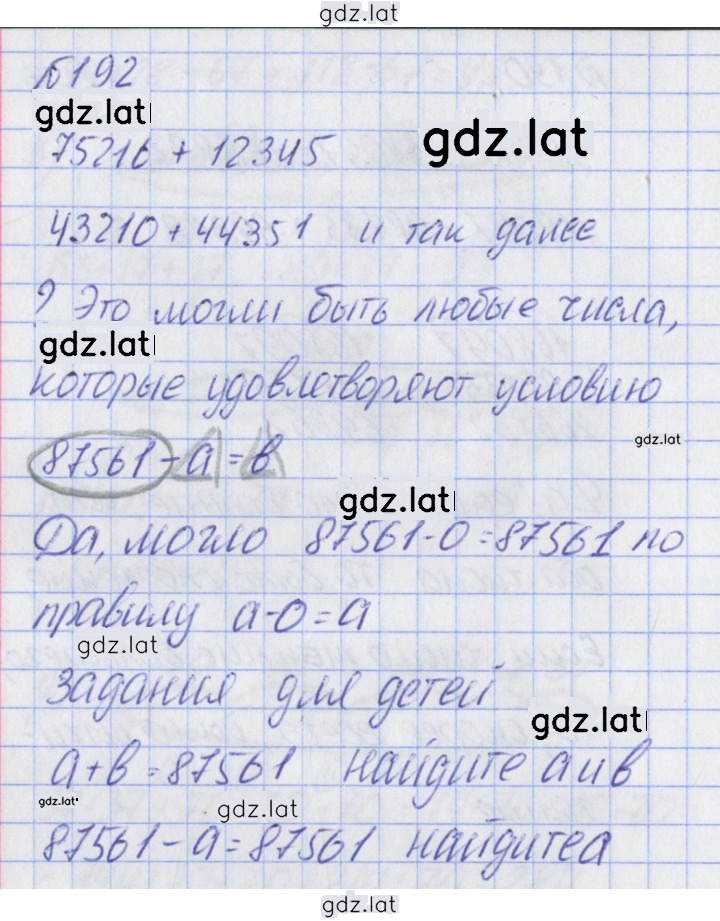 gdz.lat
№192
gdz.lat
75216 + 12345
gdz.lat
43210 + 44351 и так далее
? Это могли быть любые числа,
gdz.lat
которые удовлетворяют условию
gdz.lat
87561 - a = b
gdz.lat
Да, могло 87561-0=87561 по
правилу a-0=a
gdz.lat
задания для детей
gdz.lat
a+b=87561 найдите a и b
gdz.lat
gdz.lat
87561 - a = 87561 найдите a
gdz.lat